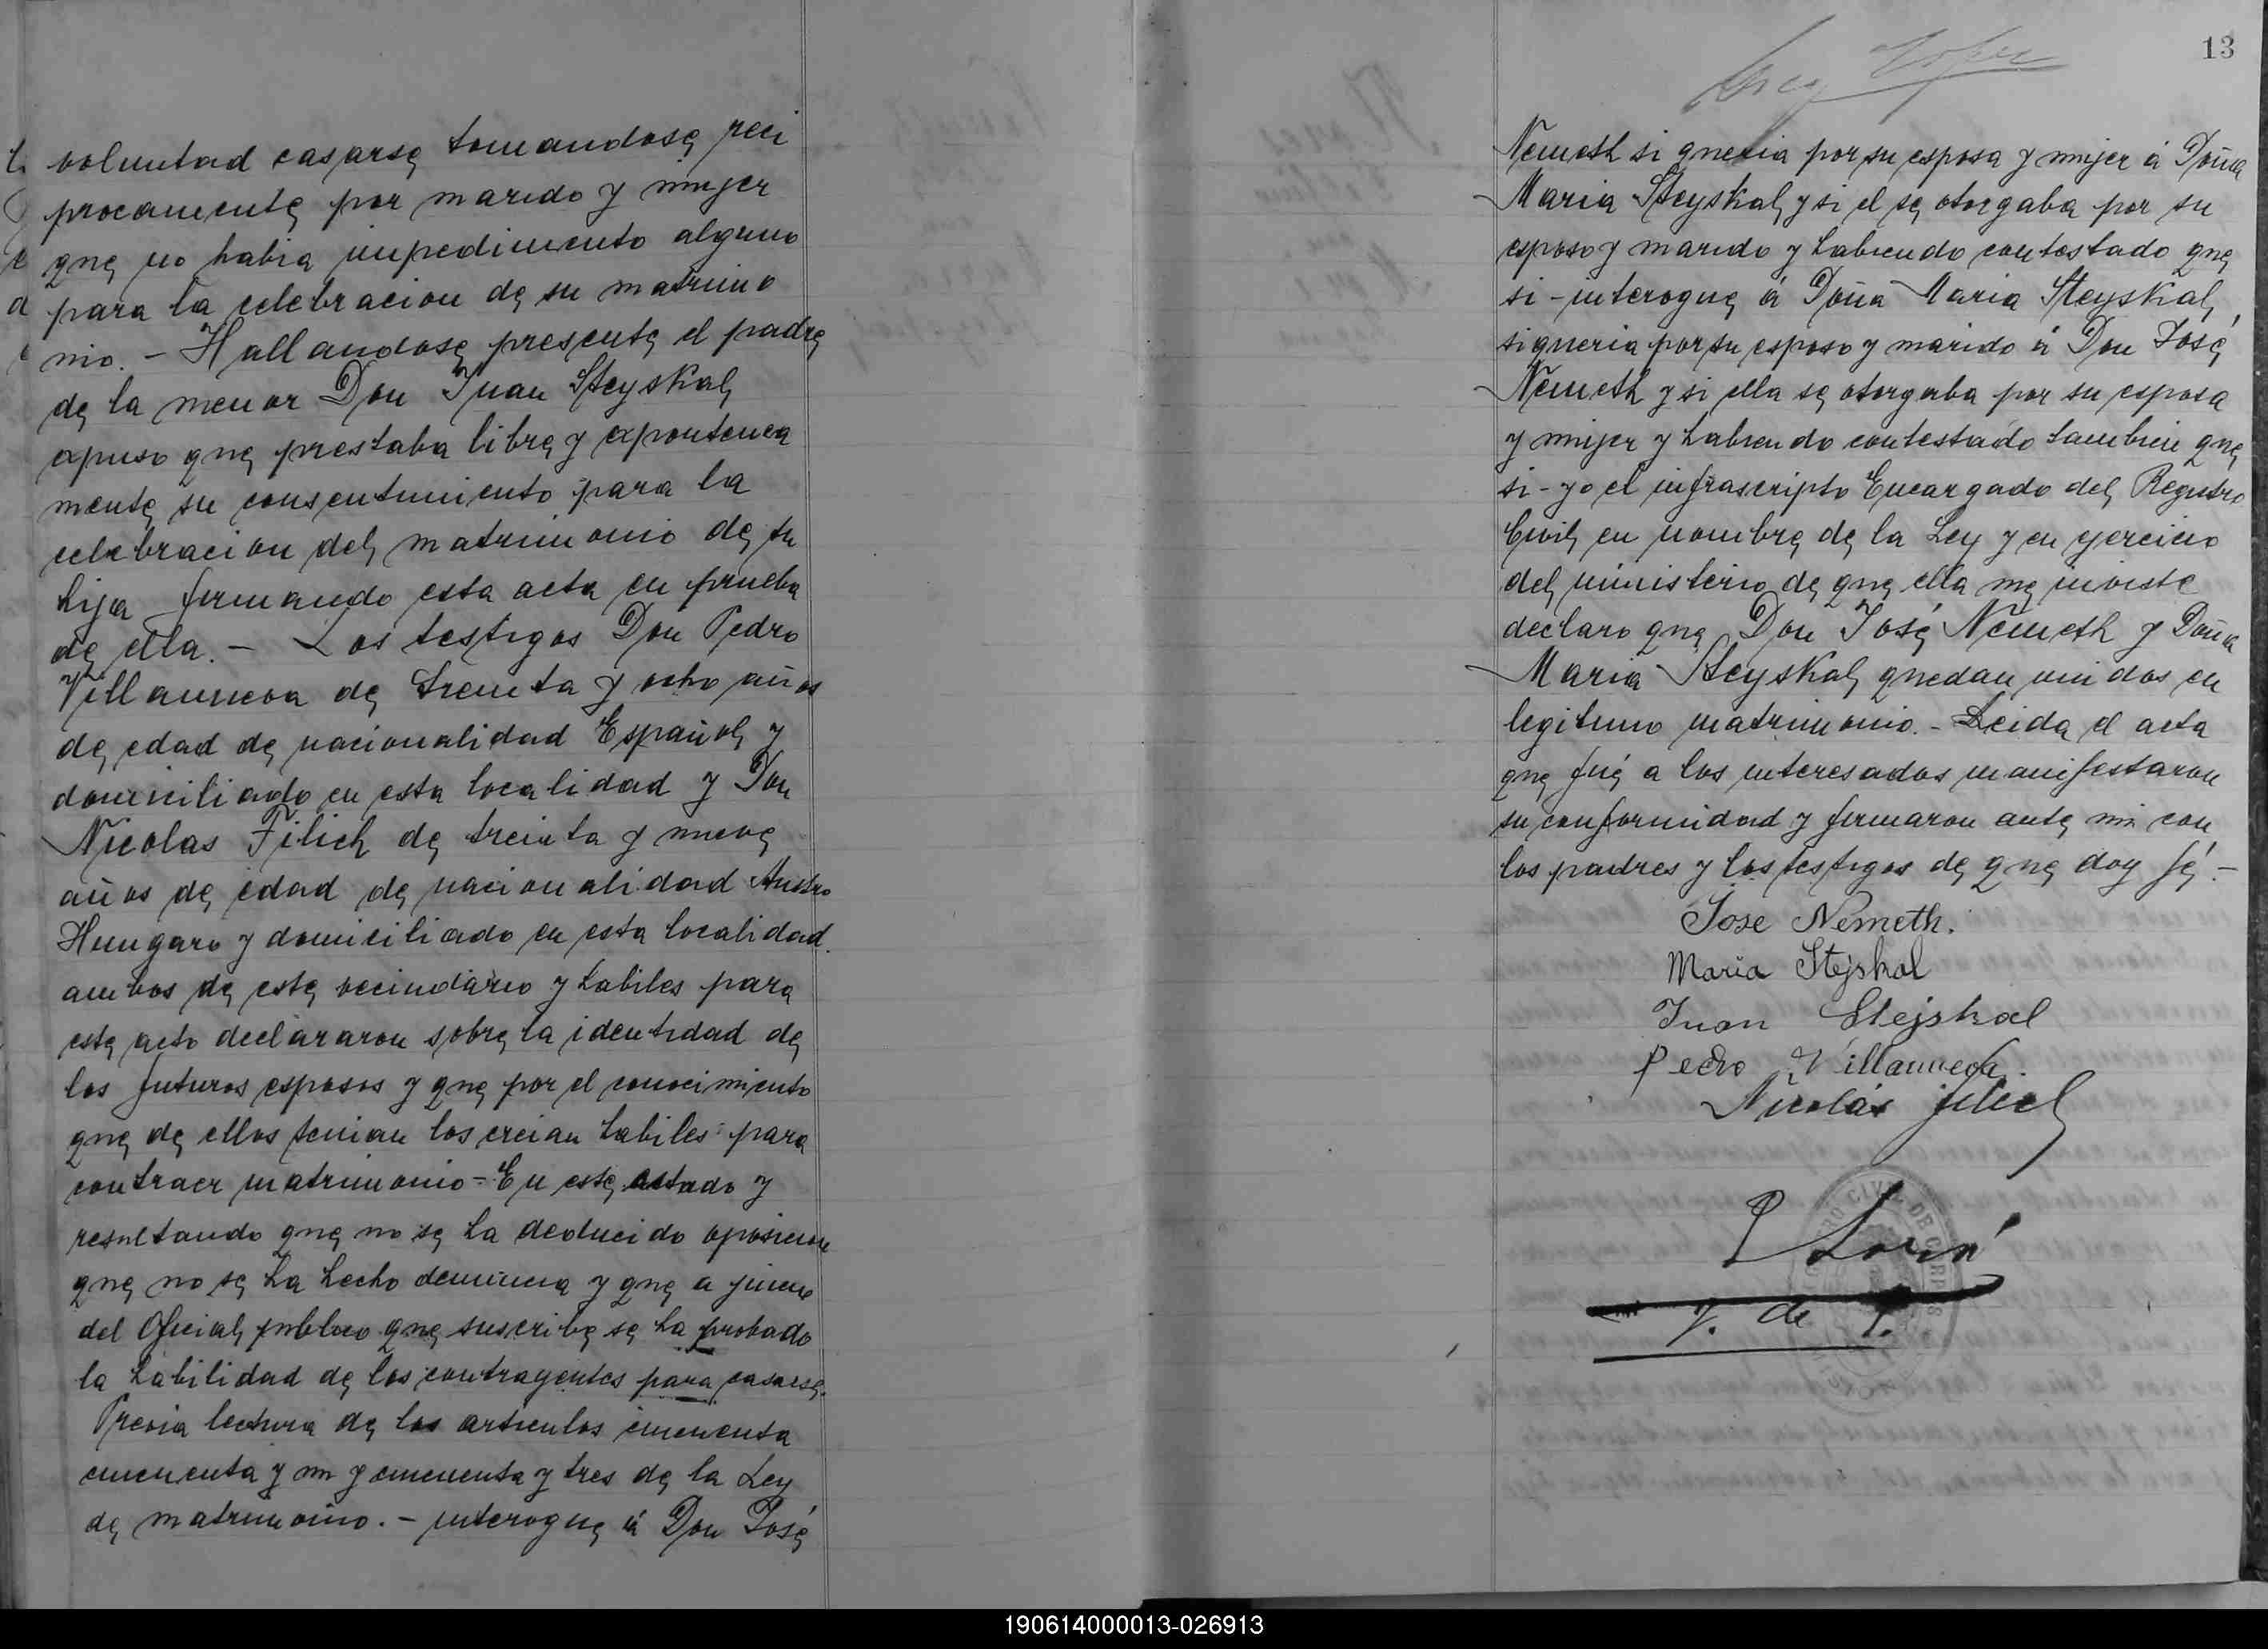 voluntad casarse tomandose reci
procamente por marido y mujer
que no habia impedimento alguno
para la celebracion de su matrimo
nio. - Hallandose presente el padre
de la menor Don Juan Steyskal
expuso que prestaba libre y expontenea
mente su consentimiento para la
celebracion del matrimonio de su
hija firmando esta acta en prueba
de ella. - Los testigos Don Pedro
Villanueva de treinta y ocho años
de edad de nacionalidad Español y
domiciliado en esta localidad y Don
Nicolas Filich de treinta y nueve
años de edad de nacionalidad Austro
Hungaro y domiciliado en esta localidad.
ambos de este vecindario y habiles para
este acto declararon sobre la identidad de
los futuros esposos y que por el conocimiento
que de ellos tenian los creian habiles para
contraer matrimonio = En este estado y
resultando que no se ha deducido oposicion
que no se ha hecho denuncia y que a juicio
del Oficial publico que suscribe se ha probado
la habilidad de los contrayentes para casarse.
Previa lectura de los articulos cincuenta
cincuenta y un y cincuenta y tres de la Ley
de matrimonio. - interogue á Don José
13
Nemeth si queria por su esposa y mujer á Doña
Maria Steyskal y si el se otorgaba por su
esposo y marido y habiendo contestado que
si - interogue á Doña Maria Steyskal,
si queria por su esposo y marido á Don José
Nemeth y si ella se otorgaba por su esposa
y mujer y habiendo contestado tambien que
si - yo el infrascripto Encargado del Registro
Civil en nombre de la Ley y en ejercicio
del ministerio de que ella me inviste
declaro que Don José Nemeth y Doña
Maria Steyskal quedan unidos en
legitimo matrimonio. - Leida el acta
que fué a los interesados manifestaron
su conformidad y firmaron ante mi con
los padres y los testigos de que doy fé. -
Jose Nemeth.
Maria Stejskal
Juan Stejskal
Pedro Villanueva.
Nicolás Filich
J. de P.
190614000013-026913